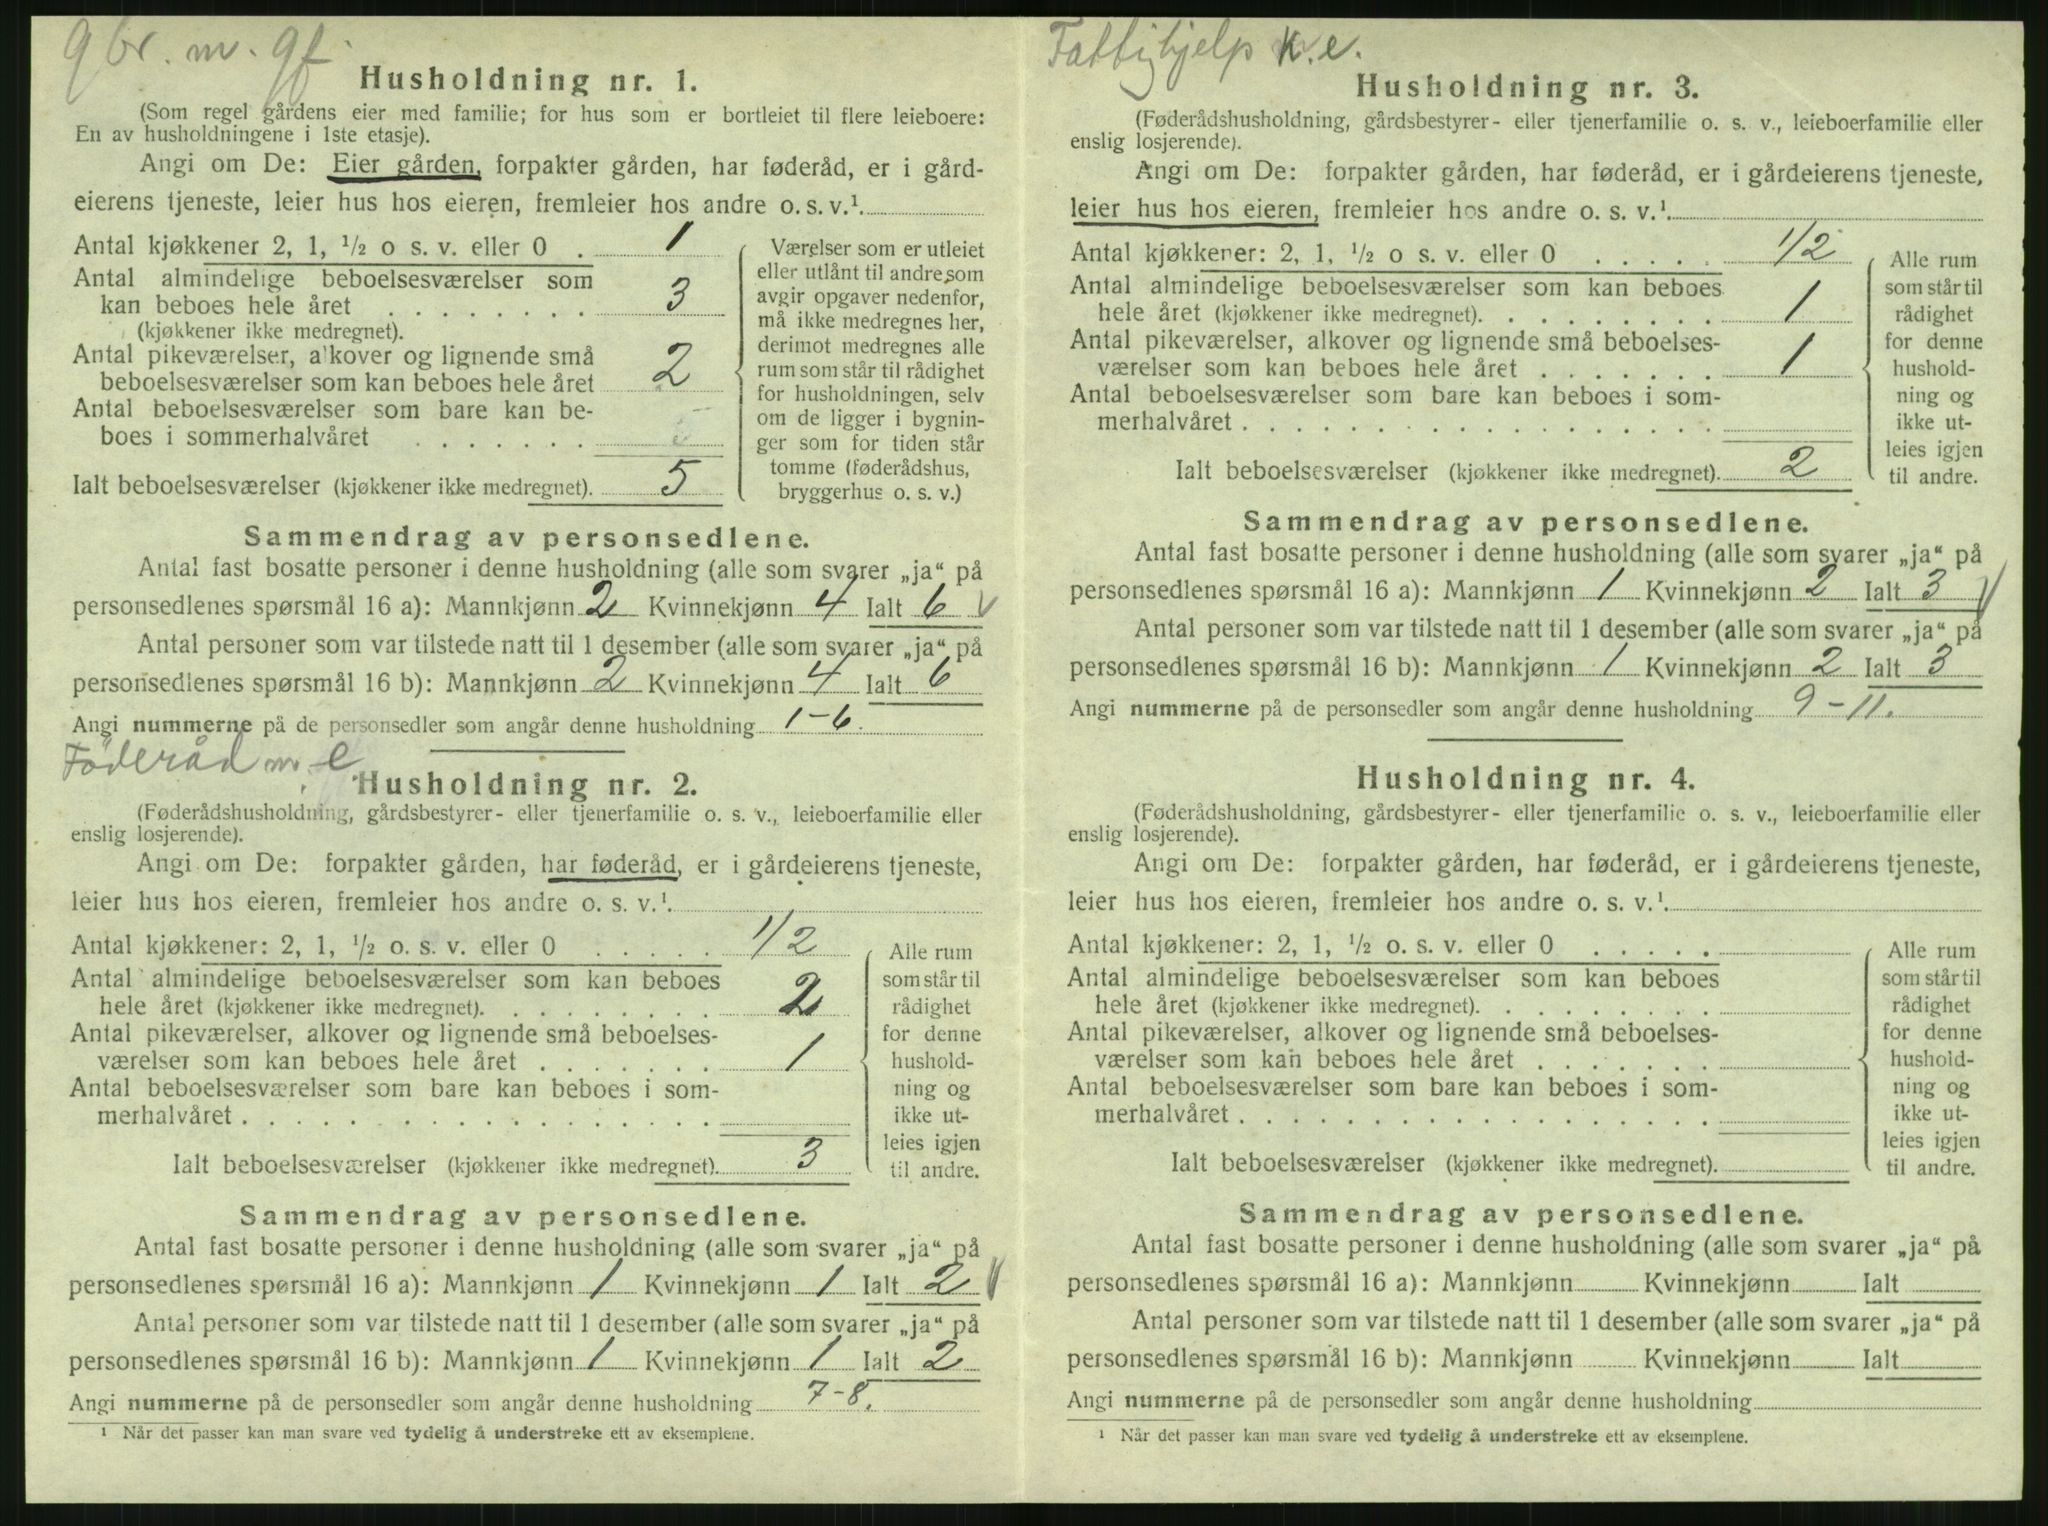 gbr. m. gf.
Husholdning nr. 1.
(Som regel gårdens eier med familie; for hus som er bortleiet til flere leieboere:
En av husholdningene i 1ste etasje).
Angi om De: Eier gården, forpakter gården, har føderåd, er i gård-
eierens tjeneste, leier hus hos eieren, fremleier hos andre o. s. v.¹
Antal kjøkkener 2, 1, ½ o s. v. eller 0 . 1
Antal almindelige beboelsesværelser som
kan beboes hele året . . . . . . . . 3
(kjøkkener ikke medregnet).
Antal pikeværelser, alkover og lignende små
beboelsesværelser som kan beboes hele året 2
Antal beboelsesværelser som bare kan be-
boes i sommerhalvåret . . . . . . .
Ialt beboelsesværelser (kjøkkener ikke medregnet). 5
Værelser som er utleiet
eller utlånt til andre som
avgir opgaver nedenfor,
må ikke medregnes her,
derimot medregnes alle
rum som står til rådighet
for husholdningen, selv
om de ligger i bygnin-
ger som for tiden står
tomme (føderådshus,
bryggerhus o. s. v.)
Sammendrag av personsedlene.
Antal fast bosatte personer i denne husholdning (alle som svarer „ja“ på
personsedlenes spørsmål 16 a): Mannkjønn 2 Kvinnekjønn 4 Ialt 6 √
Antal personer som var tilstede natt til 1 desember (alle som svarer „ja“ på
personsedlenes spørsmål 16 b): Mannkjønn 2 Kvinnekjønn 4 Ialt 6
Angi nummerne på de personsedler som angår denne husholdning 1-6.
Føderåd m. e
Husholdning nr. 2.
(Føderådshusholdning, gårdsbestyrer- eller tjenerfamilie o. s. v., leieboerfamilie eller
enslig losjerende).
Angi om De: forpakter gården, har føderåd, er i gårdeierens tjeneste,
leier hus hos eieren, fremleier hos andre o. s. v.¹
Antal kjøkkener: 2, 1, ½ o. s. v. eller 0 . . . . . 1/2
Antal almindelige beboelsesværelser som kan beboes
hele året (kjøkkener ikke medregnet). . . . . . . . . 2
Antal pikeværelser, alkover og lignende små beboelses-
værelser som kan beboes hele året . . . . . . . 1
Antal beboelsesværelser som bare kan beboes i som-
merhalvåret . . . . . . . . . . . . . . . . . .
Ialt beboelsesværelser (kjøkkener ikke medregnet). 3
Alle rum
som står til
rådighet
for denne
hushold-
ning og
ikke ut-
leies igjen
til andre.
Sammendrag av personsedlene.
Antal fast bosatte personer i denne husholdning (alle som svarer „ja“ på
personsedlenes spørsmål 16 a): Mannkjønn 1 Kvinnekjønn 1 Ialt 2 √
Antal personer som var tilstede natt til 1 desember (alle som svarer „ja“ på
personsedlenes spørsmål 16 b): Mannkjønn 1 Kvinnekjønn 1 Ialt 2
Angi nummerne på de personsedler som angår denne husholdning 7-8.
¹ Når det passer kan man svare ved tydelig å understreke ett av eksemplene.
Fattighjelp k. e.
Husholdning nr. 3.
(Føderådshusholdning, gårdsbestyrer- eller tjenerfamilie o. s. v., leieboerfamilie eller
enslig losjerende).
Angi om De: forpakter gården, har føderåd, er i gårdeierens tjeneste,
leier hus hos eieren, fremleier hos andre o. s. v.¹
Antal kjøkkener: 2, 1, ½ o s. v. eller 0 . . . . . 1/2
Antal almindelige beboelsesværelser som kan beboes
hele året (kjøkkener ikke medregnet). . . . . . . . . 1
Antal pikeværelser, alkover og lignende små beboelses-
værelser som kan beboes hele året . . . . . . . 1
Antal beboelsesværelser som bare kan beboes i som-
merhalvåret . . . . . . . . . . . . . . . . . .
Ialt beboelsesværelser (kjøkkener ikke medregnet). 2
Alle rum
som står til
rådighet
for denne
hushold-
ning og
ikke ut-
leies igjen
til andre.
Sammendrag av personsedlene.
Antal fast bosatte personer i denne husholdning (alle som svarer „ja“ på
personsedlenes spørsmål 16 a): Mannkjønn 1 Kvinnekjønn 2 Ialt 3 √
Antal personer som var tilstede natt til 1 desember (alle som svarer „ja“ på
personsedlenes spørsmål 16 b): Mannkjønn 1 Kvinnekjønn 2 Ialt 3
Angi nummerne på de personsedler som angår denne husholdning 9-11.
Husholdning nr. 4.
(Føderådshusholdning, gårdsbestyrer- eller tjenerfamilie o. s. v., leieboerfamilie eller
enslig losjerende).
Angi om De: forpakter gården, har føderåd, er i gårdeierens tjeneste,
leier hus hos eieren, fremleier hos andre o. s. v.¹
Antal kjøkkener: 2, 1, ½ o. s. v. eller 0 . . . . .
Antal almindelige beboelsesværelser som kan beboes
hele året (kjøkkener ikke medregnet). . . . . . . . .
Antal pikeværelser, alkover og lignende små beboelses-
værelser som kan beboes hele året . . . . . . .
Antal beboelsesværelser som bare kan beboes i som-
merhalvåret . . . . . . . . . . . . . . . . . .
Ialt beboelsesværelser (kjøkkener ikke medregnet).
Alle rum
som står til
rådighet
for denne
hushold-
ning og
ikke ut-
leies igjen
til andre.
Sammendrag av personsedlene.
Antal fast bosatte personer i denne husholdning (alle som svarer „ja“ på
personsedlenes spørsmål 16 a): Mannkjønn Kvinnekjønn Ialt
Antal personer som var tilstede natt til 1 desember (alle som svarer „ja“ på
personsedlenes spørsmål 16 b): Mannkjønn Kvinnekjønn Ialt
Angi nummerne på de personsedler som angår denne husholdning
¹ Når det passer kan man svare ved tydelig å understreke ett av eksemplene.